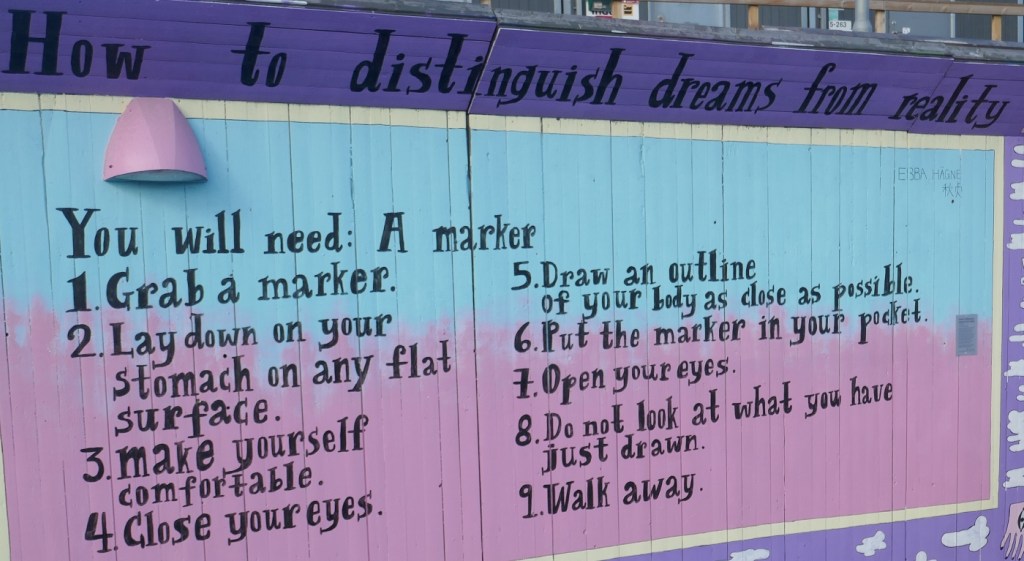 How to distinguish dreams from reality
EBBA HAGNE
You will need: A marker
1. Grab a marker.
2. Lay down on your
stomach on any flat
surface.
3. make yourself
comfortable.
4. Close your eyes.
5. Draw an outline
of your body as close as possible.
6. Put the marker in your pocket.
7. Open your eyes.
8. Do not look at what you have
just drawn.
9. Walk away.